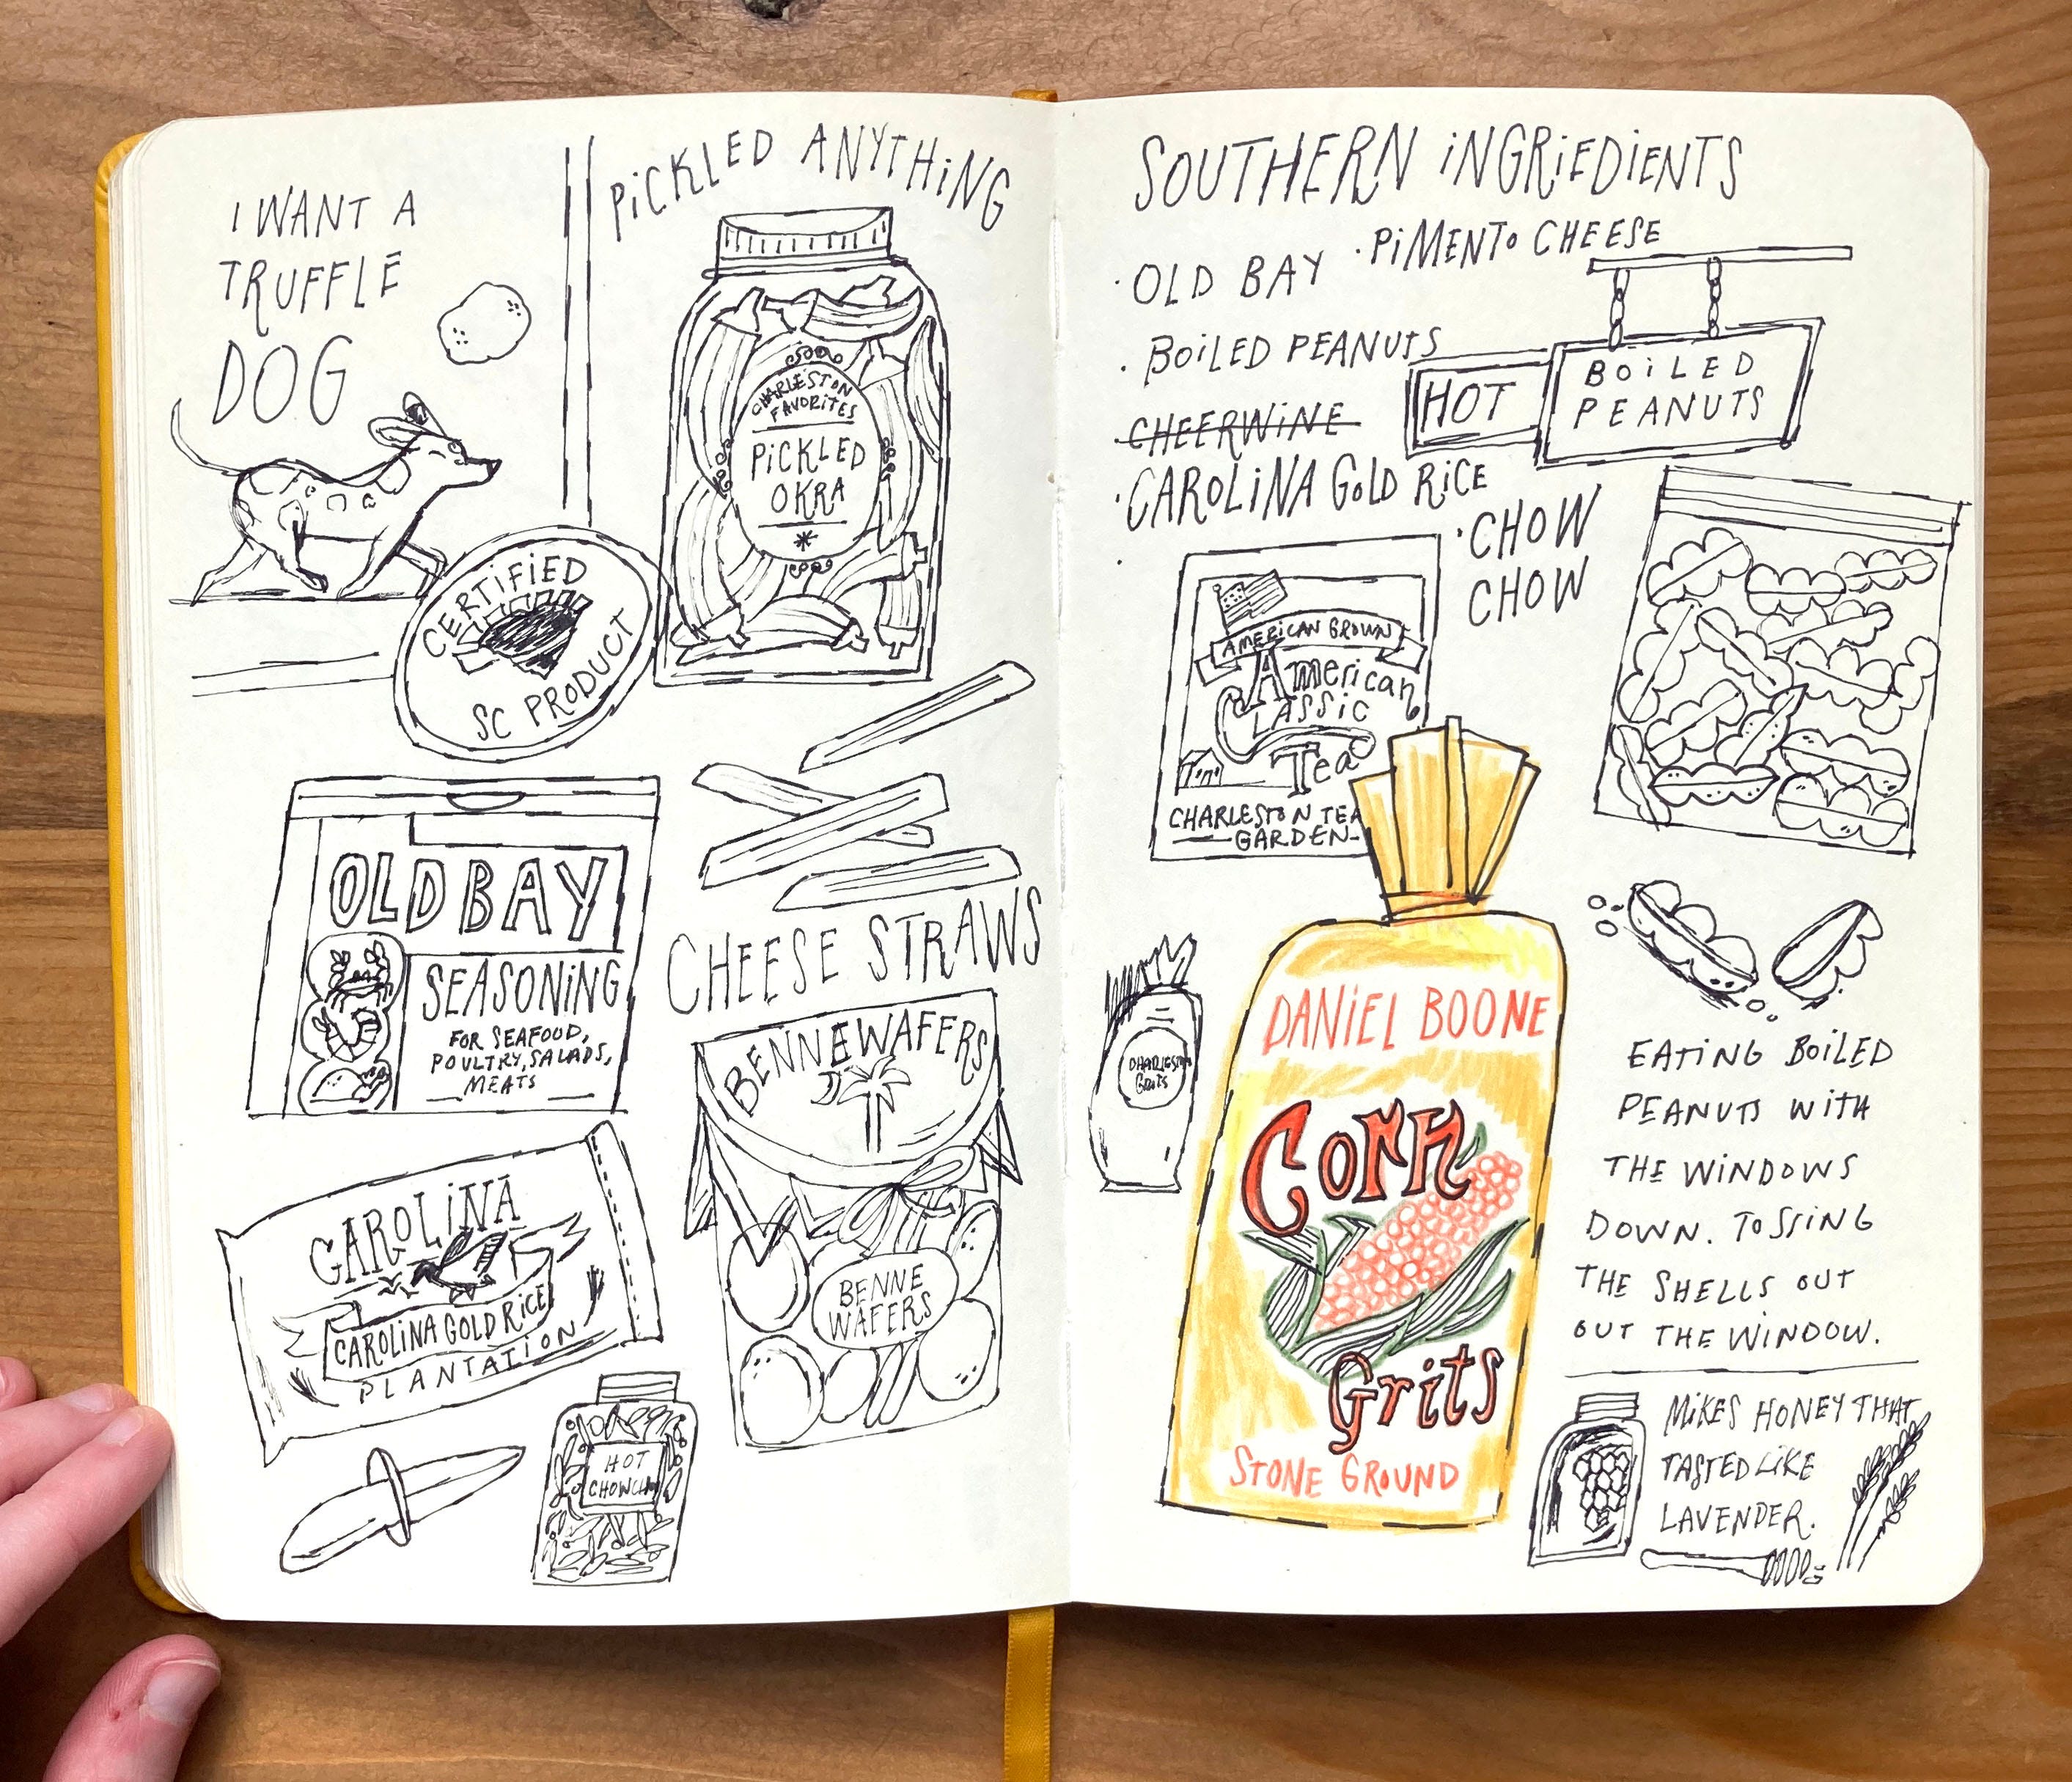 I WANT A
TRUFFLE
DOG
PICKLED ANYTHING
CHARLESTON
FAVORITES
PICKLED
OKRA
CERTIFIED
SC PRODUCT
OLD BAY
SEASONING
FOR SEAFOOD,
POULTRY, SALADS,
MEATS
CHEESE STRAWS
BENNE WAFERS
BENNE
WAFERS
CAROLINA
CAROLINA GOLD RICE
PLANTATION
HOT
SOUTHERN INGRIEDIENTS
· PIMENTO CHEESE
· OLD BAY
· BOILED PEANUTS
HOT
BOILED
PEANUTS
CHEERWINE
· CAROLINA GOLD RICE
· CHOW
CHOW
AMERICAN GROWN
American
Classic
Tea
CHARLESTON TEA
GARDEN
CHARLESTON
Grits
DANIEL BOONE
Corn
Grits
STONE GROUND
EATING BOILED
PEANUTS WITH
THE WINDOWS
DOWN. TOSSING
THE SHELLS OUT
OUT THE WINDOW.
MIKES HONEY THAT
TASTED LIKE
LAVENDER.